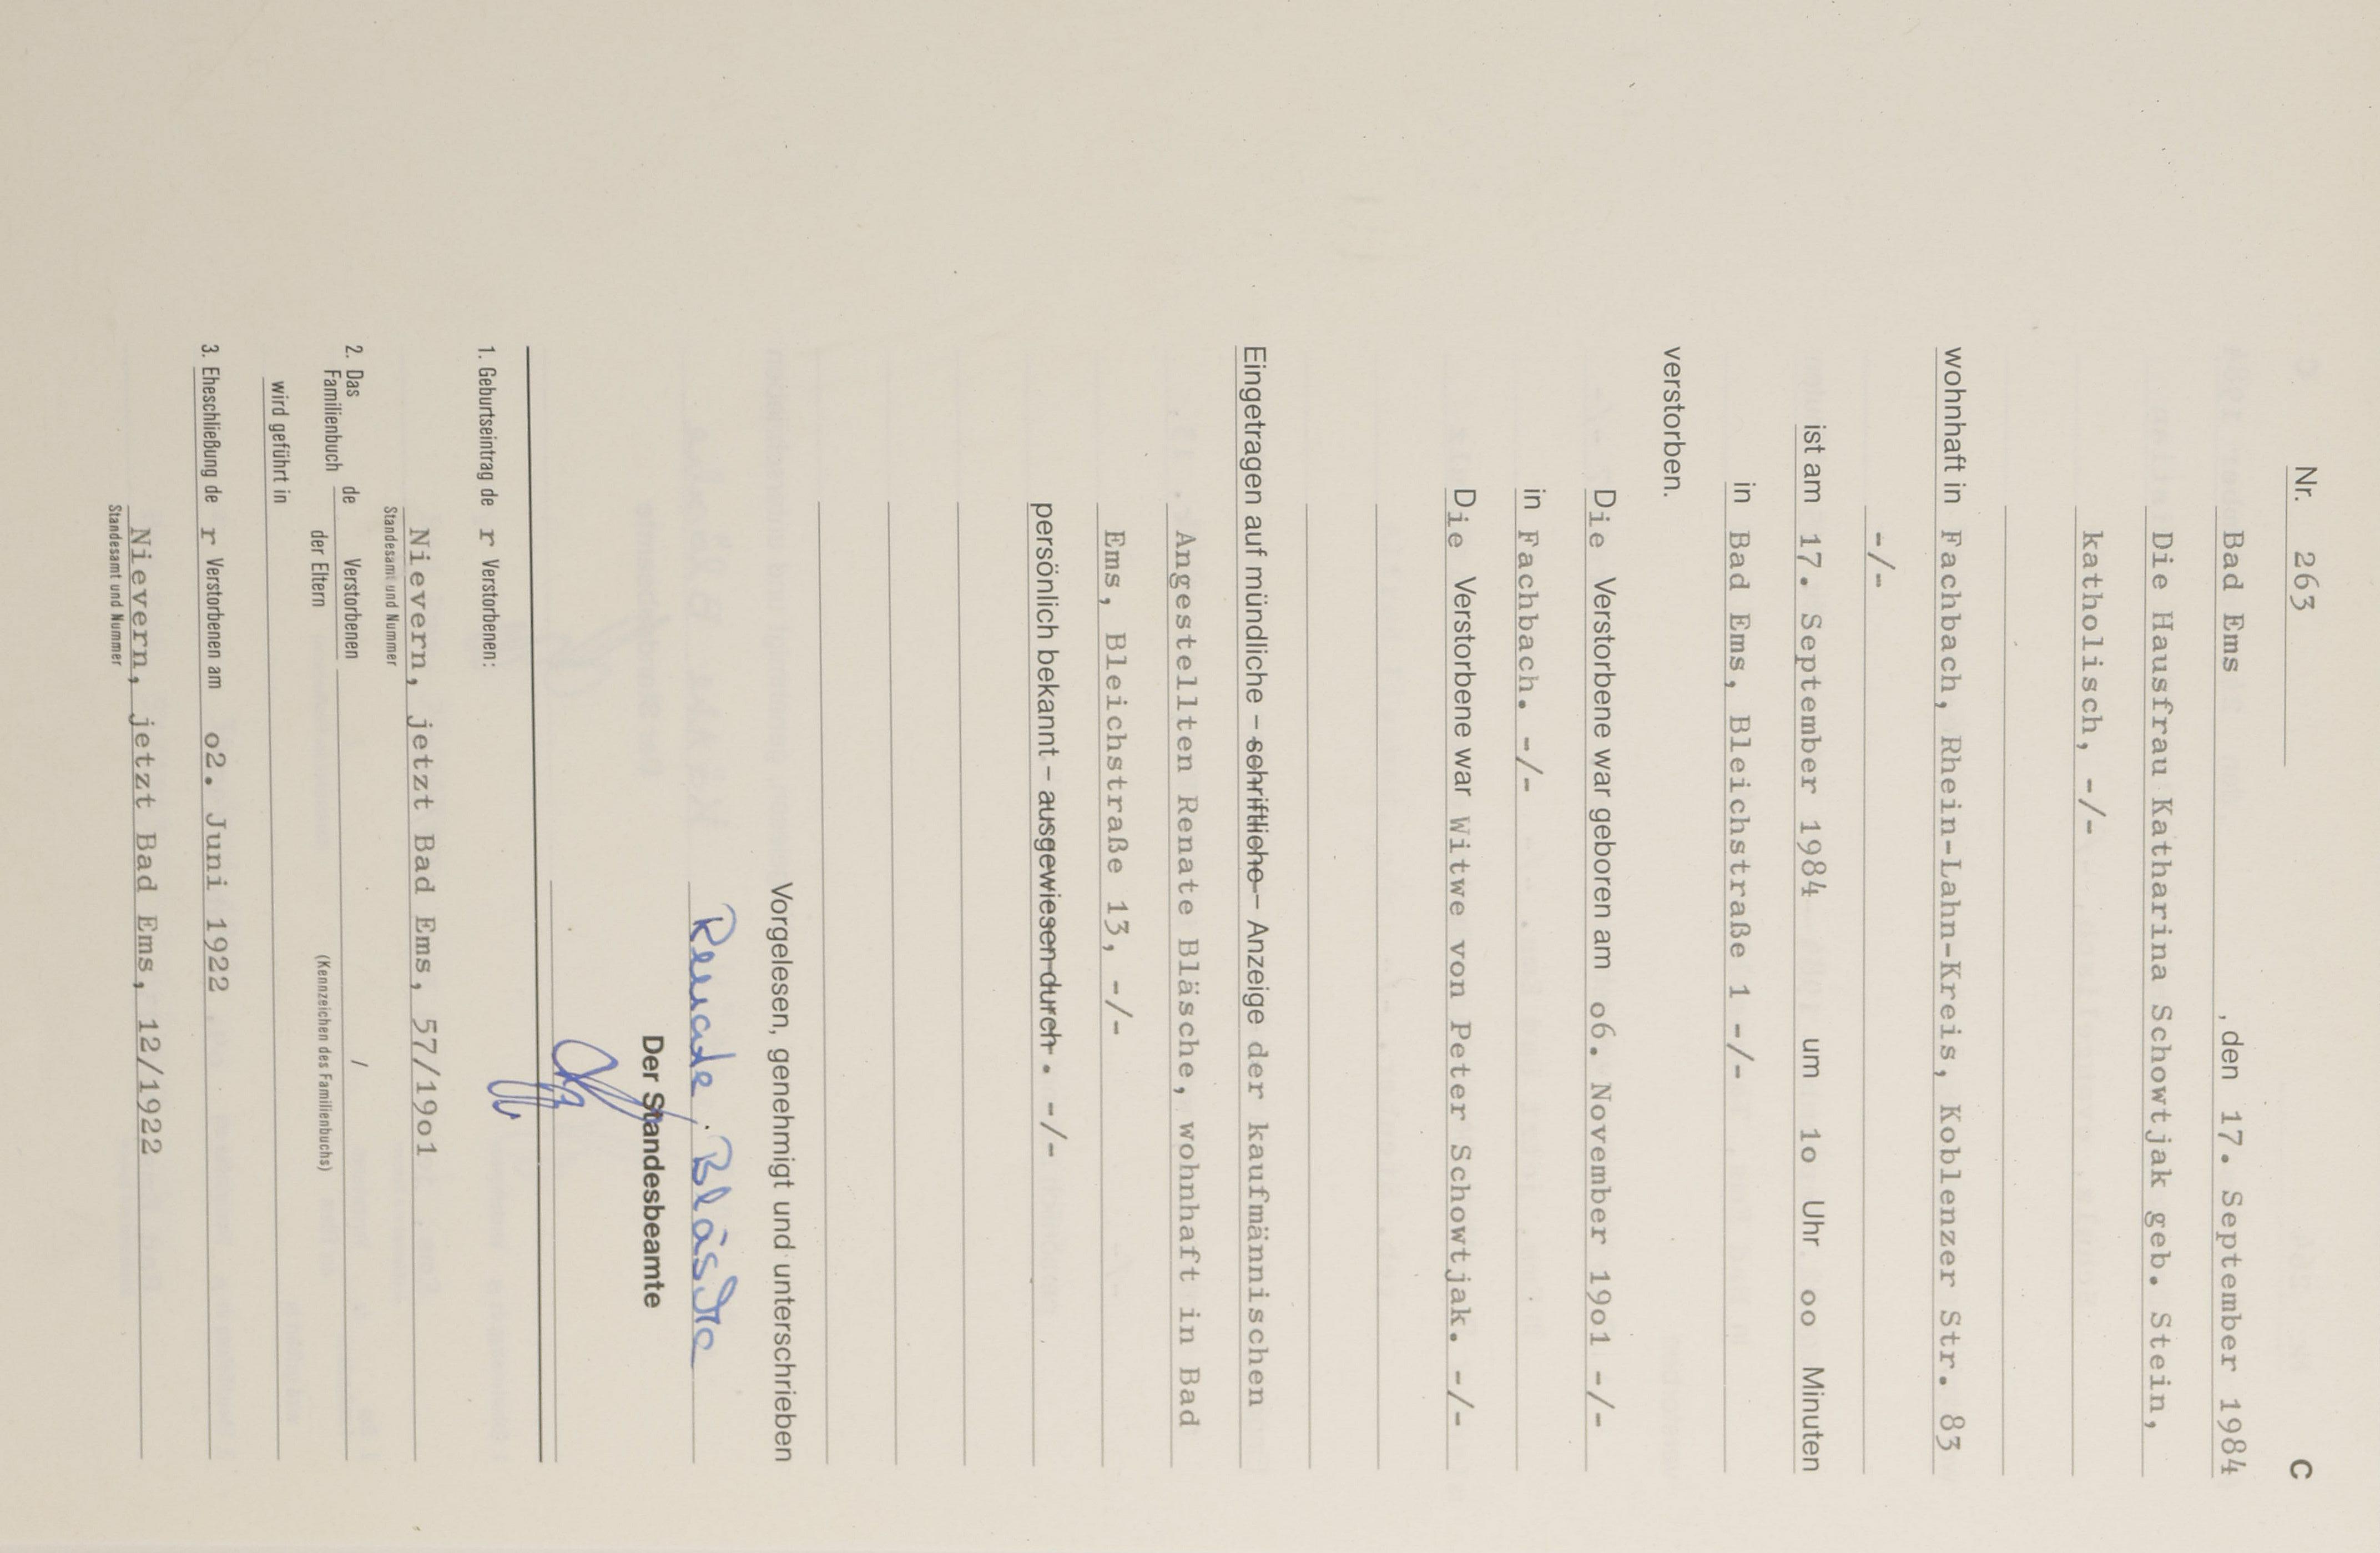 C
Nr. 263
Bad Ems , den 17. September 1984
Die Hausfrau Katharina Schowtjak geb. Stein,
katholisch, -/-
wohnhaft in Fachbach, Rhein-Lahn-Kreis, Koblenzer Str. 83
-/-
ist am 17. September 1984 um 1o Uhr oo Minuten
in Bad Ems, Bleichstraße 1 -/-
verstorben.
Die Verstorbene war geboren am o6. November 19o1 -/-
in Fachbach. -/-
Die Verstorbene war Witwe von Peter Schowtjak. -/-
Eingetragen auf mündliche – schriftliche – Anzeige der kaufmännischen
Angestellten Renate Bläsche, wohnhaft in Bad
Ems, Bleichstraße 13, -/-
persönlich bekannt – ausgewiesen durch . -/-
Vorgelesen, genehmigt und unterschrieben
Renate Bläsche
Der Standesbeamte
1. Geburtseintrag de r Verstorbenen:
Nievern, jetzt Bad Ems, 57/19o1
Standesamt und Nummer
2. Das Familienbuch de Verstorbenen /
der Eltern (Kennzeichen des Familienbuchs)
wird geführt in
3. Eheschließung de r Verstorbenen am o2. Juni 1922
Nievern, jetzt Bad Ems, 12/1922
Standesamt und Nummer